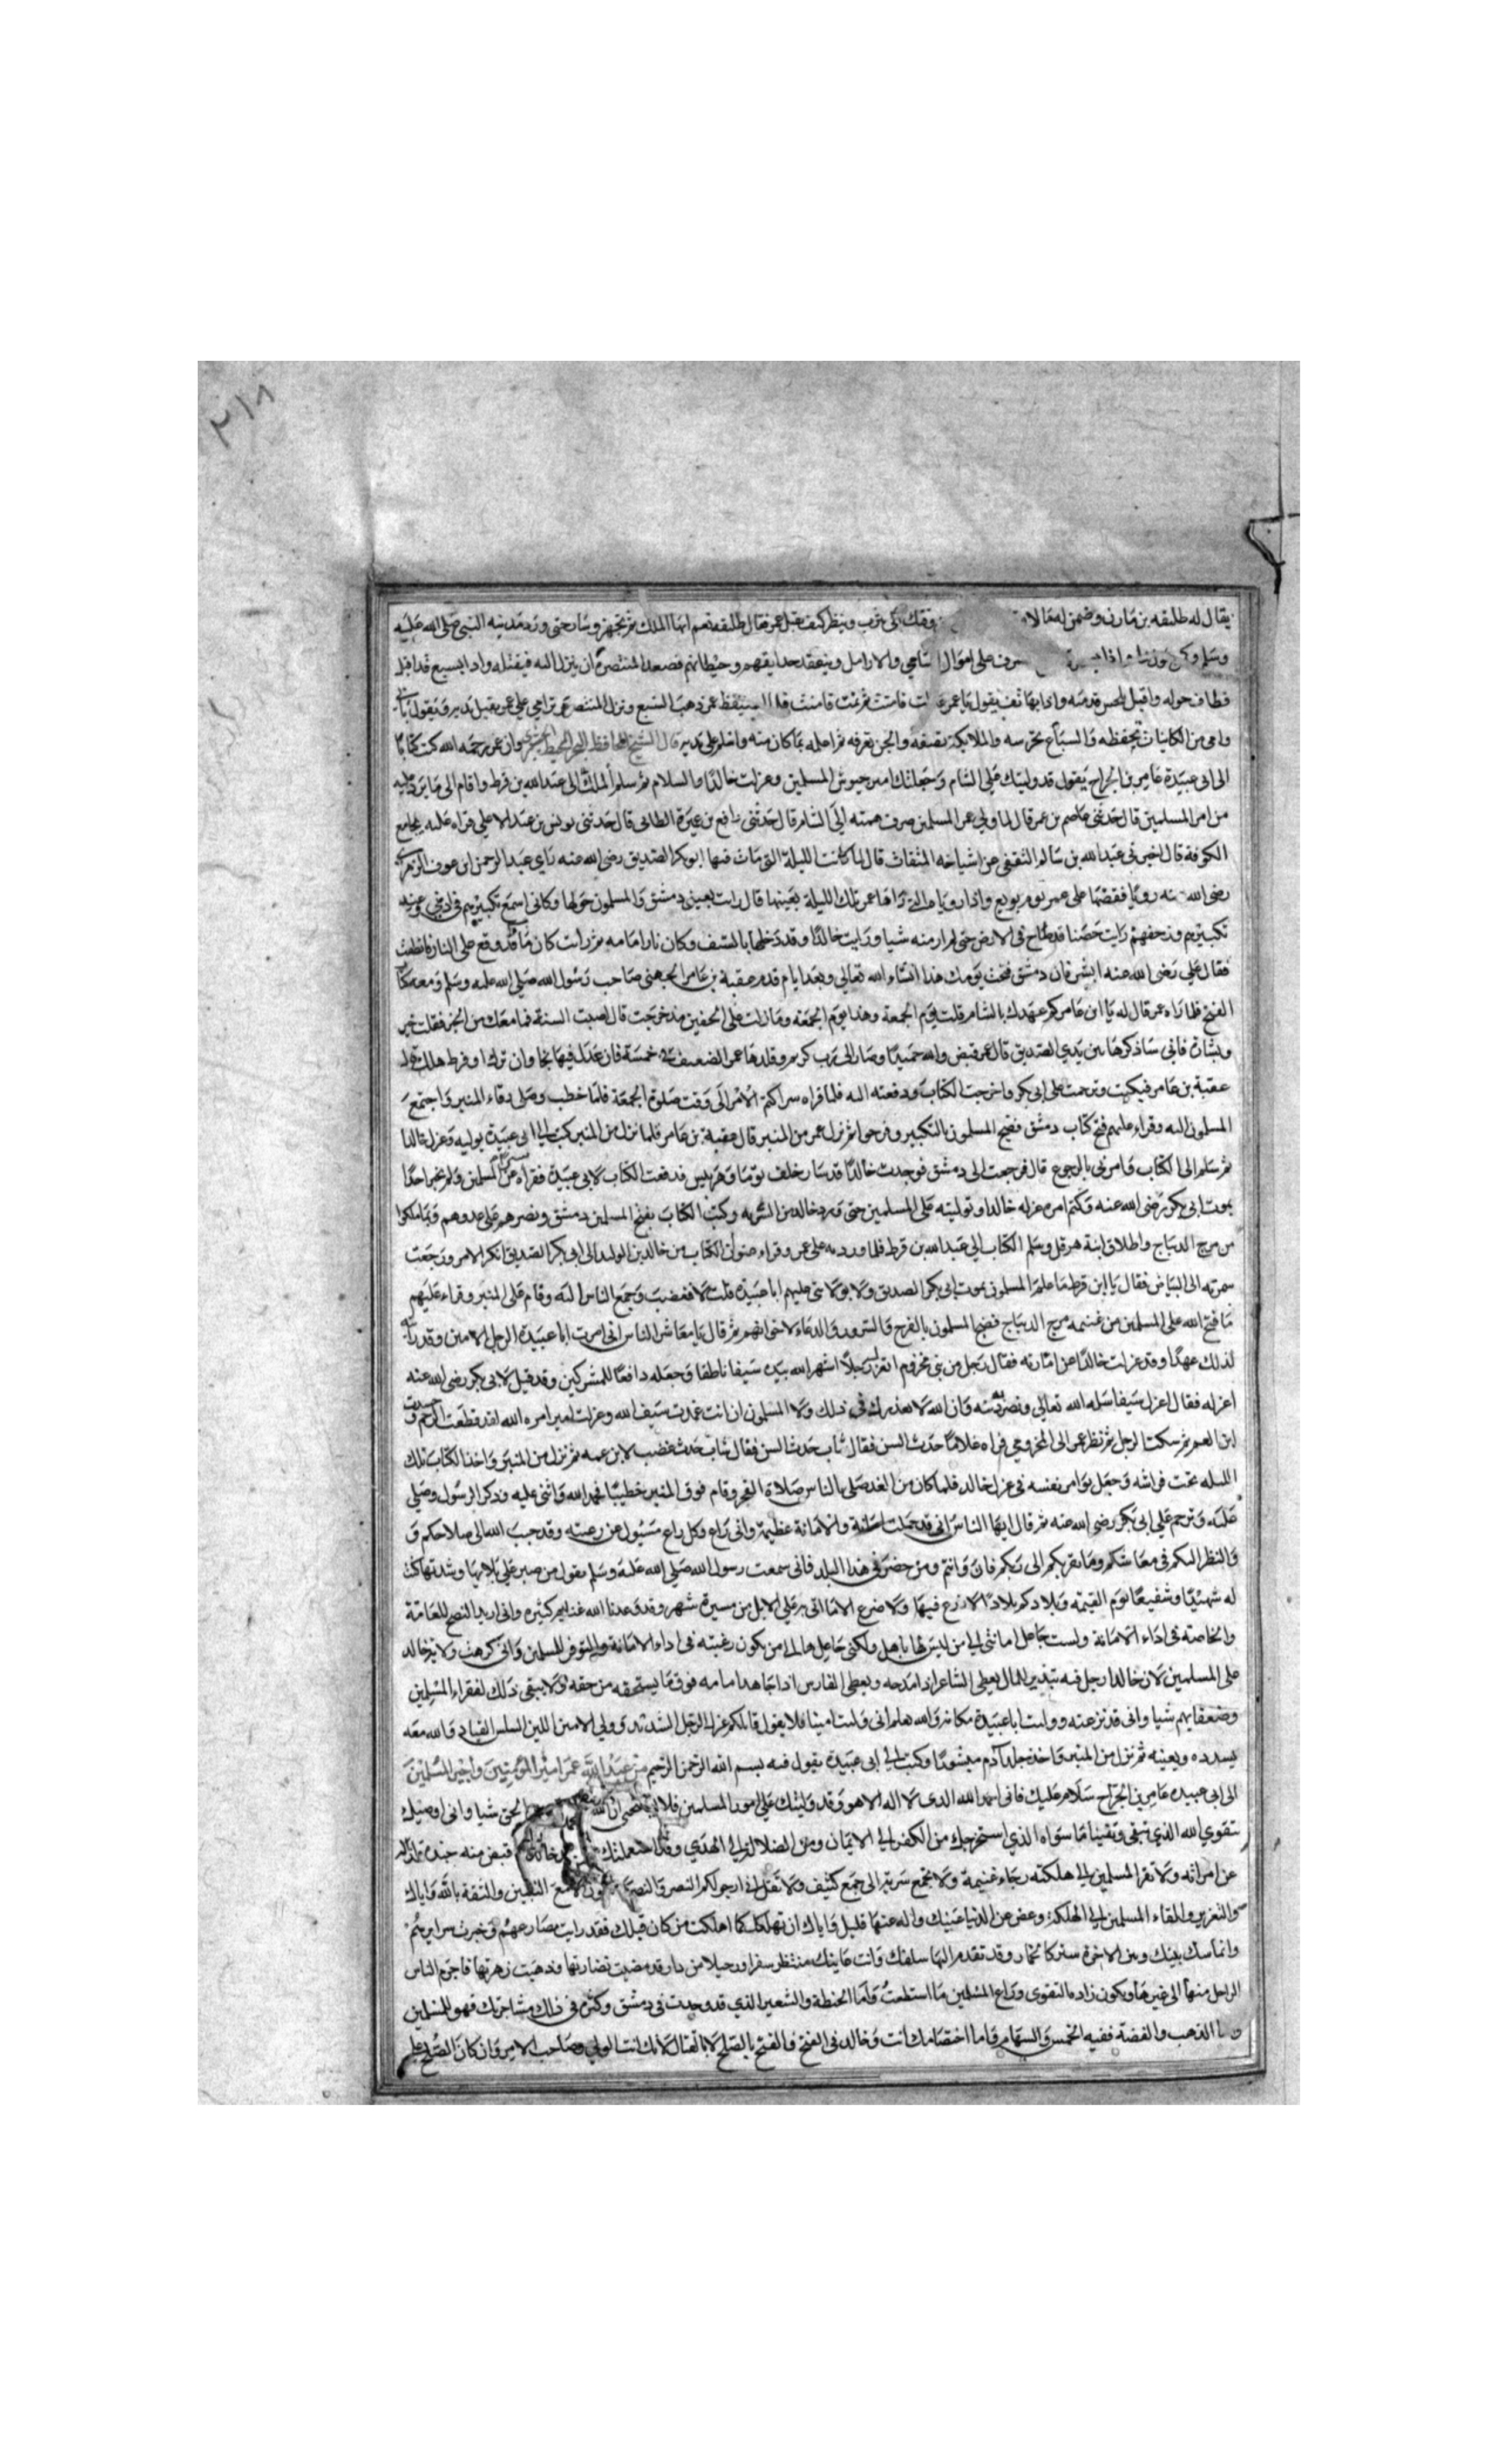 ٢١٨
يقال له طليقه بن مارن وضمن له مالا وفقك الى يثرب وينظر كيف يقتل عمر فقال طليقه نعم ايها الملك ثم تجهز وسار حتى ورد مدينه النبي صلى الله عليه
وسلم على اموال اليتامي والارامل وينعقد حدايقهم وحيطانهم فصعد المتنصرة ان ينزل اليه فيقتله واذا بسبع قد اقبل
فطاف حوله واقبل يلحس قدميه واذا بهاتف يقول يا عمر عدلت فامنت ثم نمت فامنت فلما استيقظ عمر ذهب السبع ونزل المتنصر ثم ترامي على عمر يقبل يديه ويقول بابي
وامي من الكاينات تحفظه والسباع تحرسه والملايكة تصفه والجن تعرفه ثم اعلمه بما كان منه واسلم على يديه قال الشيخ وان عمر رحمه الله كتب كتابا
الى ابي عبيدة عامر بن الجراح يقول قد وليتك علي الشام وجعلتك امير جيوش المسلمين وعزلت خالدا والسلام ثم سلم الى عبد الله بن قرط واقام الى ما يرد عليه
من امر المسلمين قال حدثني عاصم بن عمر قال لما ولي عمر المسلمين صرف همته الى الشام قال حدثني رافع بن عيرة الطائى قال حدثني يونس بن عبد الاعلي قراه عليه بجامع
الكوفة قال اخبرني عبد الله بن سالم الثقفي عن اشياخه الثقات قال لما كانت الليلة التي مات فيها ابو بكر الصديق رضى الله عنه راي عبد الرحمن ابن عوف الزهري
رضى الله عنه رويا فقصها على عمر يوم بويع واذا راها عمر تلك الليلة بعينها قال رايت بعيني دمشق والمسلمون حولها وكاني اسمع تكبيرهم في اذني وعند
تكبيرهم وزحفهم رايت حصنا قد طاح في الارض حتى لم ار منه شيا ورايت خالدا وقد دخلها بالسيف وكان نارا امامه ثم رايت كان ماء قد وقع على النار فانطفت
فقال علي رضى الله عنه ابشر فان دمشق فتحت يومك هذا انشاء الله تعالي وبعد ايام قدم عقبة بن عامر الجهني صاحب رسول الله صلي الله عليه وسلم ومعه كتاب
الفتح فلما راه عمر قال له يا ابن عامر كم عهدك بالشام قلت يوم الجمعة وهذا يوم الجمعه ومازلت على الخفين منذ خرجت قال اصبت السنة فما معك من الخبر فقلت خير
وبشارة فاني ساذكرها بين يدي الصديق قال عمر قبض والله حميدا وصار الى رب كريم وقلدها عمر الضعيف في جسمه فان عدل فيها نجا وان ترك او فرط هلك قال
عقبة بن عامر فبكيت وترحمت على ابي بكر واخرجت الكتاب ودفعته اليه فلما قراه سرا كتم الامر الى وقت صلوة الجمعة فلما خطب وصلى ورقاء المنبر واجتمع
المسلمون اليه وقراء عليهم فتح كتاب دمشق فضج المسلمون بالتكبير وفرحوا ثم نزل عمر من المنبر قال عقبة بن عامر فلما نزل من المنبر كتب الي ابى عبيدة يوليه وعزل خالدا
ثم سلم الى الكتاب وامرني بالرجوع قال فرجعت الى دمشق فوجدت خالدا قد سار خلف توما وهربيس فدفعت الكتاب لابي عبيدة فقراه سرا عن المسلمين ولم يخبر احدا
بموت ابي بكر رضى الله عنه وكتم امره عزله خالدا وتوليته على المسلمين حتى ورد خالد من السريه وكتب الكتاب بفتح المسلمين دمشق ونصرهم على عدوهم وبما ملكوا
من مرج الديباج واطلاق ابنة هرقل وسلم الكتاب الي عبد الله بن قرط فلما ورد به على عمر وقراء عنوان الكتاب من خالد بن الوليد الى ابي بكر الصديق انكر الامر ورجعت
سمرته الى البياض فقال يا ابن قرط ما علم المسلمون بموت ابي بكر الصديق ولا بولايتي عليهم ابا عبيدة قلت لا فغضب وجمع الناس اليه وقام على المنبر وقراء عليهم
ما فتح الله على المسلمين من غنيمه مرج الديباج فضج المسلمون بالفرح والسرور والدعاء لاخوانهم ثم قال يا معاشر الناس اني امرت ابا عبيدة الرجل الامين وقد رايته
لذلك عهدا وقد عزلت خالدا عن امارته فقال رجل من بني مخزوم اتعزل رجلا اشهر الله بيده سيفا ناطقا وجعله دافعا للمشركين وقد قيل لابي بكر رضى الله عنه
اعزله فقال اعزل سيفا سله الله تعالي ونصر به دينه وان الله لا يعذرك في ذلك ولا المسلمون ان انت غمدت سيف الله وعزلت امير امره الله لقد قطعت الرحم وحسدت
ابن العم ثم سكت الرجل ثم نظر عمر الى المخزومي فراه غلاما حدث السن فقال شاب حدث السن فقال شاب حدث غضب لابن عمه ثم نزل من المنبر واخذ الكتاب تلك
الليله تحت فراشه وجعل يوامر نفسه في عزل خالد فلما كان من الغد صلى بالناس صلاة الفجر وقام فوق المنبر خطيبا فحمد الله واثنى عليه وذكر الرسول وصلي
عليه وترحم علي ابي بكر رضى الله عنه ثم قال ايها الناس اني قد حملت امانة والامانة عظيمة واني راع وكل راع مسيول عن رعيته وقد حبب الله الي صلاحكم و
والنظر اليكم في معايشكم وما يقربكم الى ربكم فان وانتم ومن حضر في هذا البلد فاني سمعت رسول الله صلي الله عليه وسلم يقول من صبر علي بلايها وشدتها كنت
له شهيدا وشفيعا يوم القيمه وبلادكم بلاد لا زرع فيها ولا ضرع الا ما اتى به علي الابل من مسيرة شهر وقد وعدنا الله غنايم كثيره واني اريد النصح للعامة
والخاصه في اداء الامانة ولست جاعل امانتي الي من ليس لها باهل ولكني جاعلها الى من يكون رغبته في اداء الامانة والتوفر للمسلمين واني كرهت ولاية خالد
على المسلمين لان خالدا رجل فيه تبذير للمال يعطي الشاعر اذا مدحه ويعطى الفارس اذا جاهد امامه فوق ما يستحقه من حقه ولا يبقى ذلك لفقراء المسلمين
وضعفايهم شيا واني قد نزعته ووليت ابا عبيدة مكانه والله يعلم اني وليت امينا فلا يقول قايلكم عزل الرجل الشديد وولي الامين اللين السلس القياد والله معه
يسدده ويعينه ثم نزل من المنبر واخذ جلد ادم منشورا وكتب الي ابى عبيدة يقول فيه بسم الله الرحمن الرحيم من عبد الله عمر امير المؤمنين واجير المسلمين
الى ابي عبيده عامر بن الجراح سلام عليك فاني احمد الله الذى لا اله الا هو وقد وليتك علي امور المسلمين فلا تستحي ان الله الحق شيا واني اوصيك
بتقوي الله الذي يبقى ويفنى ما سواه الذي استخرجك من الكفر الي الايمان ومن الضلالة الي الهدى وقد استعملتك خالد فاقبض منه جنده
عن امراته ولا تفر المسلمين الي هلكته رجاء غنيمة ولا تجمع سرية الى جمع كثيف ولا تقل اني ارجو لكم النصر والنصر اليقين والثقة بالله واياك
والتغرير والقاء المسلمين الي الهلكة وغض عن الدنيا عينيك واله عنها قلبك واياك ان تهلك كما اهلكت من كان قبلك فقد رايت مصارعهم وخبرت سرايرهم
وانما بينك وبين الاخرة ستر كالخمار وقد تقدم اليها سلفك وانت كانك منتظر سفرا ورحيلا من دار قد مضت نضارتها وذهبت زهرتها فاحزم الناس
الراحل منها الى غيرها ويكون زاده التقوى وراع المسلمين ما استطعت واما الحنطة والشعير الذي قد وجدت في دمشق وكثرت في ذلك مشاجرتك فهو للمسلمين
واما الذهب والفضة ففيه الخمس والسهام واما اختصامك انت وخالد في الفتح فالفتح بالصلح لا بالقتال لانك انت الولي وصاحب الامر وان كان الصلح علي